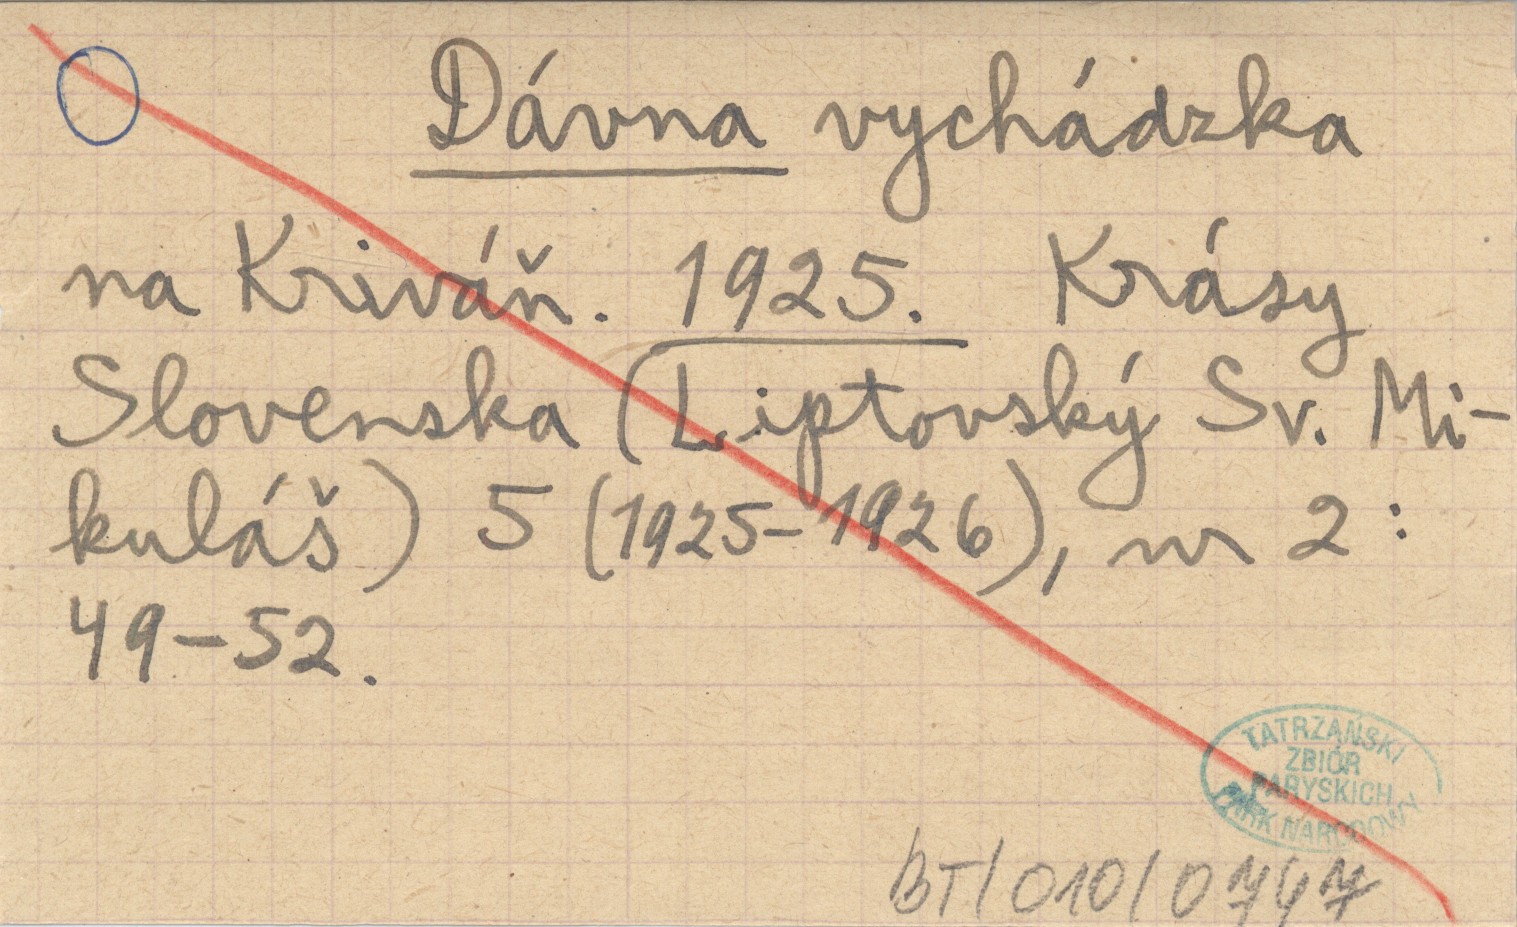 Dávna vychádzka
na Kriváň. 1925. Krásy
Slovenska (Liptovský Sv. Mi-
kuláš) 5 (1925-1926), nr 2:
49-52.
TATRZAŃSKI
ZBIÓR
PARYSKICH
PARK NARODOWY
BT/010/0747